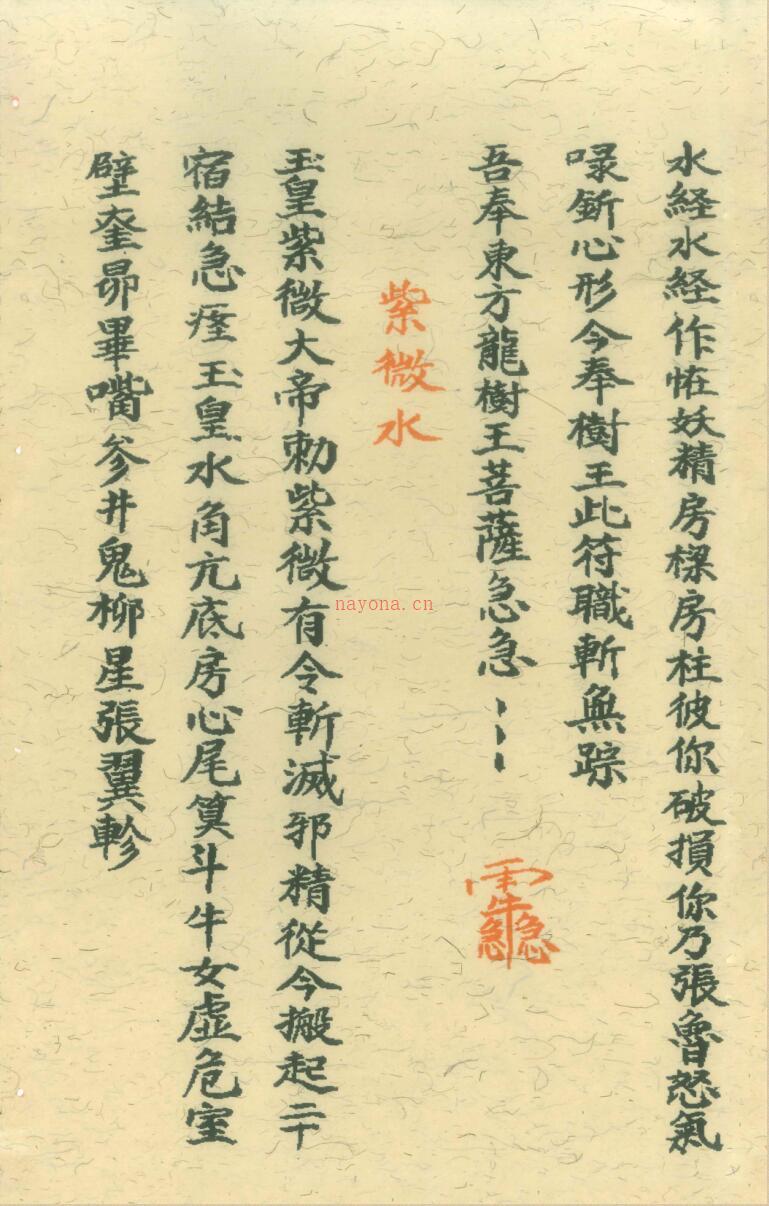 水経水経作恠妖精房樑房柱彼你破損你乃張魯怒氣
喙斩心形今奉樹王此符職斬無踪
吾奉東方龍樹王菩薩急急
紫微水
玉皇紫微大帝勅紫微有令斬滅邪精從今搬起二十
宿結急痓玉皇水角亢底房心尾箕斗牛女虛危室
壁奎昴畢嘴參井鬼柳星張翼軫
nayona.cn